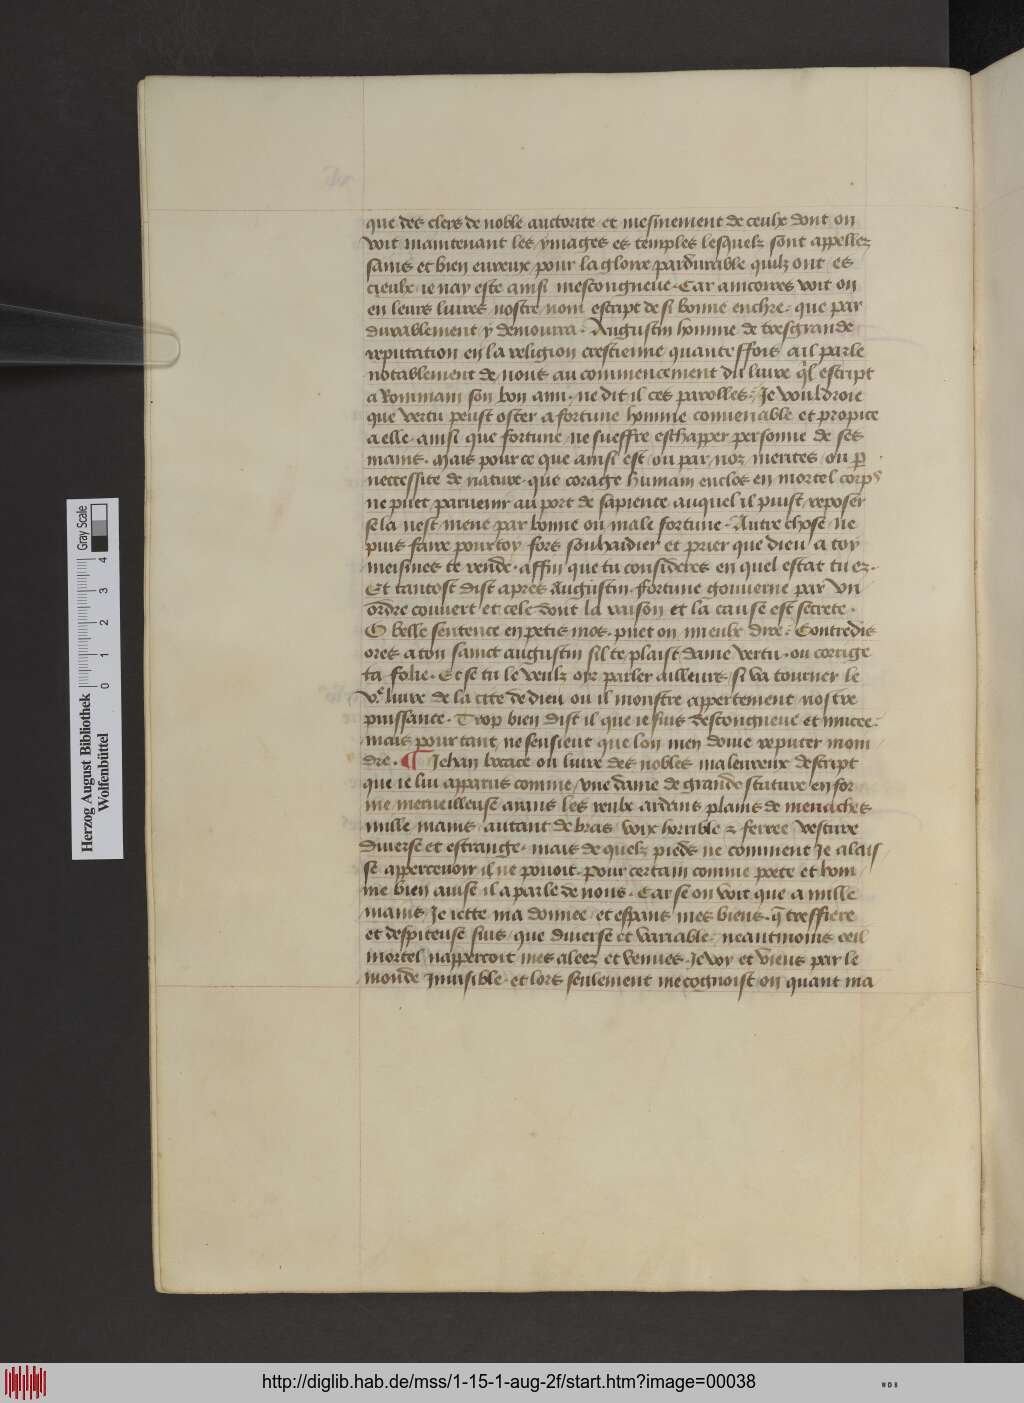 que des clers de noble auctorite et mesmement de ceulx dont on
voit maintenant les ymages es temples lesquelz sont appellez
sains et bien eureux pour la gloire pardurable quilz ont es
cieulx ie nay este ainsi mescongneue. Car ancores voit on
en leurs liures nostre nom escript de si bonne enchre. que par
durablement y demourra. Augustin homme de tresgrande
reputation en la religion crestienne quanteffois a il parle
notablement de nous au commencement du liure ql escript
a Rommain son bon ami. ne dit il ces parolles. Je vouldroie
que vertu peust oster a fortune homme conuenable et propice
a elle. ainsi que fortune ne sueffre eschapper personne de ses
mains. Mais pour ce que ainsi est ou par noz merites ou p
neccessite de nature. que corage humain enclos en mortel corps
ne puet paruenir au port de sapience auquel il puist reposer
se la nest mene par bonne ou male fortune. Autre chose ne
puis faire pour toy fors souhaidier et prier que dieu a toy
meismes te rende. affin que tu consideres en quel estat tu ez.
Et tantost dist apres Augustin. fortune gouuerne par vn
ordre couuert et cele dont la raison et la cause est secrete.
O belle sentence en petis mos. puet on mieulx dire. Contredis
ores a ton sainct augustin sil te plaist dame vertu. ou corrige
ta folie. Et se tu le veulz oyr parler ailleurs si va tourner le
ve liure de la cite de dieu ou il monstre appertement nostre
puissance. Trop bien dist il que ie suis descongneue et mucee.
mais pourtant ne sensieut que lon men doiue reputer moin
dre. ¶ Jehan bocace ou liure des nobles maleureux descript
que ie lui apparus comme vne dame de grande stature en for
me merueilleuse aians les yeulx ardens plains de menaches
mille mains autant de bras voix horrible & ferree vesture
diuerse et estrange. mais de quelz pieds ne comment Je alais
se apperceuoir il ne pouoit. pour certain comme poete et hom
me bien auise il a parle de nous. Car se on voit que a mille
mains Je iette ma donnee et espans mes biens. q tresfiere
et despiteuse suis que diuerse et variable. neantmoins oeil
mortel nappercoit mes aleez et venues. Je voy et viens par le
monde Inuisible. et lors seulement me cognoist on quant ma
Herzog August Bibliothek
Wolfenbüttel
Gray Scale
0 1 2 3 4
http://diglib.hab.de/mss/1-15-1-aug-2f/start.htm?image=00038
WDB